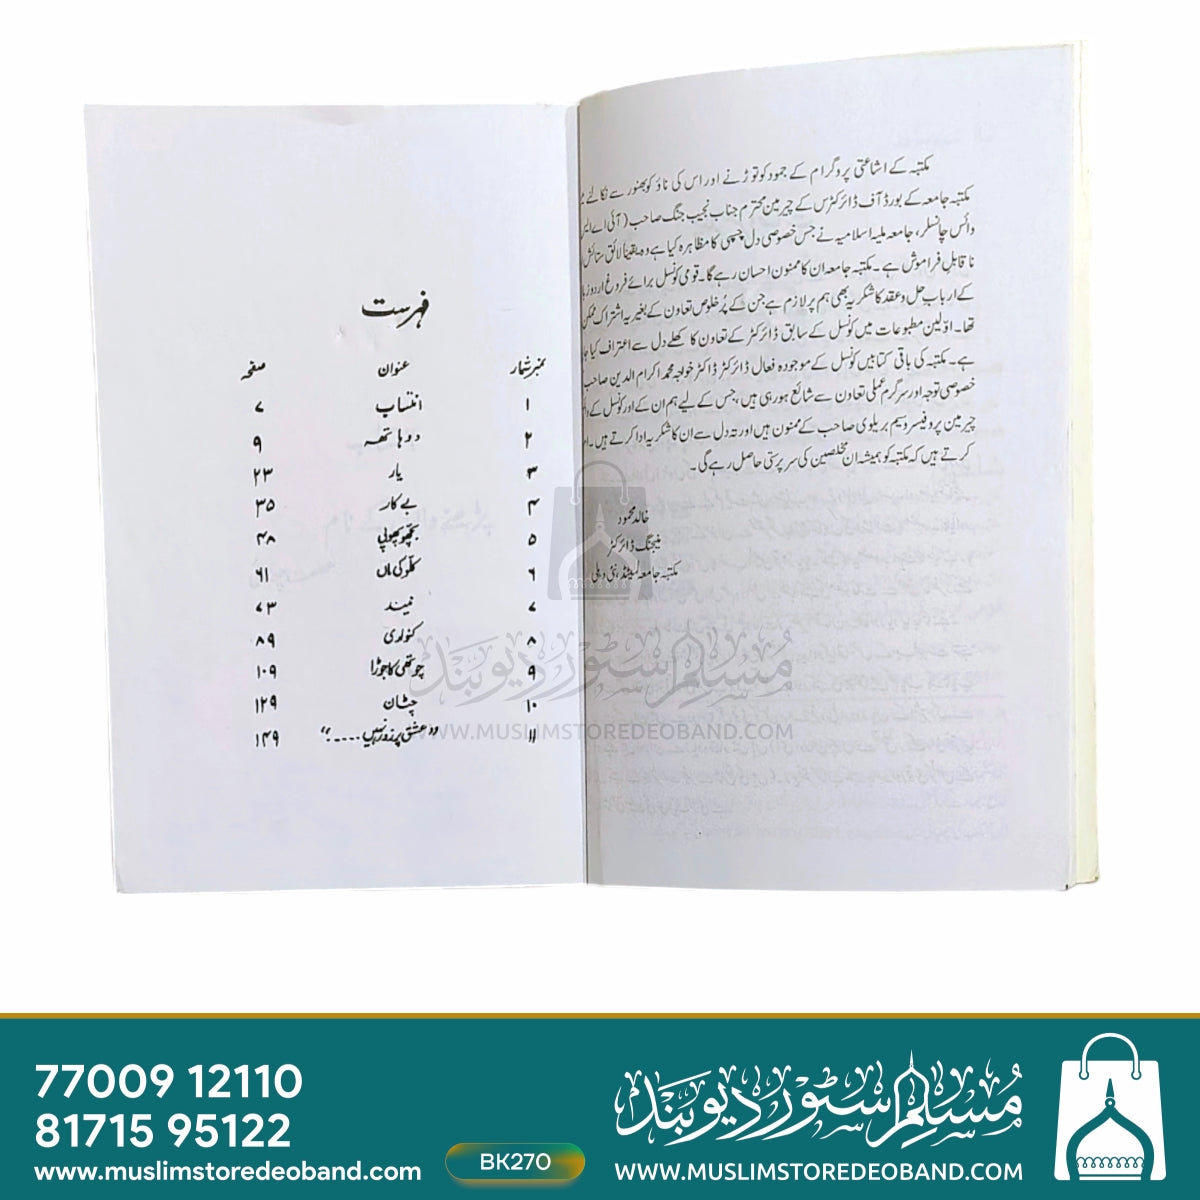 مکتبہ کے اشاعتی پروگرام کے جمود کو توڑنے اور اس کی ناؤ کو بھنور سے نکالنے
مکتبہ جامعہ کے بورڈ آف ڈائرکٹرس کے چیرمین محترم جناب نجیب جنگ صاحب (آئی اے ایس
وائس چانسلر، جامعہ ملیہ اسلامیہ نے جس خصوصی دل چسپی کا مظاہرہ کیا ہے وہ یقیناً لائق ستائش
ناقابلِ فراموش ہے۔ مکتبہ جامعہ ان کا ممنون احسان رہے گا۔ قومی کونسل برائے فروغ اردو
کے ارباب حل و عقد کا شکریہ بھی ہم پر لازم ہے جن کے پُرخلوص تعاون کے بغیر یہ اشتراک ممکن
تھا۔ اوّلین مطبوعات میں کونسل کے سابق ڈائرکٹر کے تعاون کا کھلے دل سے اعتراف کیا جا
ہے۔ مکتبہ کی باقی کتابیں کونسل کے موجودہ فعال ڈائرکٹر ڈاکٹر خواجہ محمد اکرام الدین صاحب
خصوصی توجہ اور سرگرم عملی تعاون سے شائع ہو رہی ہیں، جس کے لیے ہم ان کے اور کونسل کے
چیرمین پروفیسر وسیم بریلوی صاحب کے ممنون ہیں اور تہ دل سے ان کا شکریہ ادا کرتے ہیں۔
کرتے ہیں کہ مکتبہ کو ہمیشہ ان مخلصین کی سرپرستی حاصل رہے گی۔
خالد محمود
منیجنگ ڈائرکٹر
مکتبہ جامعہ لمیٹڈ، نئی دہلی
فہرست
نمبر شمار عنوان صفحہ
۱ انتساب ۷
۲ دو ہاتھ ۹
۳ یار ۲۳
۴ بے کار ۳۵
۵ بچھو پھوپی ۴۸
۶ کلّو کی ماں ۶۱
۷ نیند ۷۳
۸ کنواری ۸۹
۹ چوتھی کا جوڑا ۱۰۹
۱۰ چٹان ۱۲۹
۱۱ "عشق پر زور نہیں ....." ۱۴۹
مسلم سٹور دیوبند
WWW.MUSLIMSTOREDEOBAND.COM
77009 12110
81715 95122
www.muslimstoredeoband.com
BK270
مسلم سٹور دیوبند
WWW.MUSLIMSTOREDEOBAND.COM